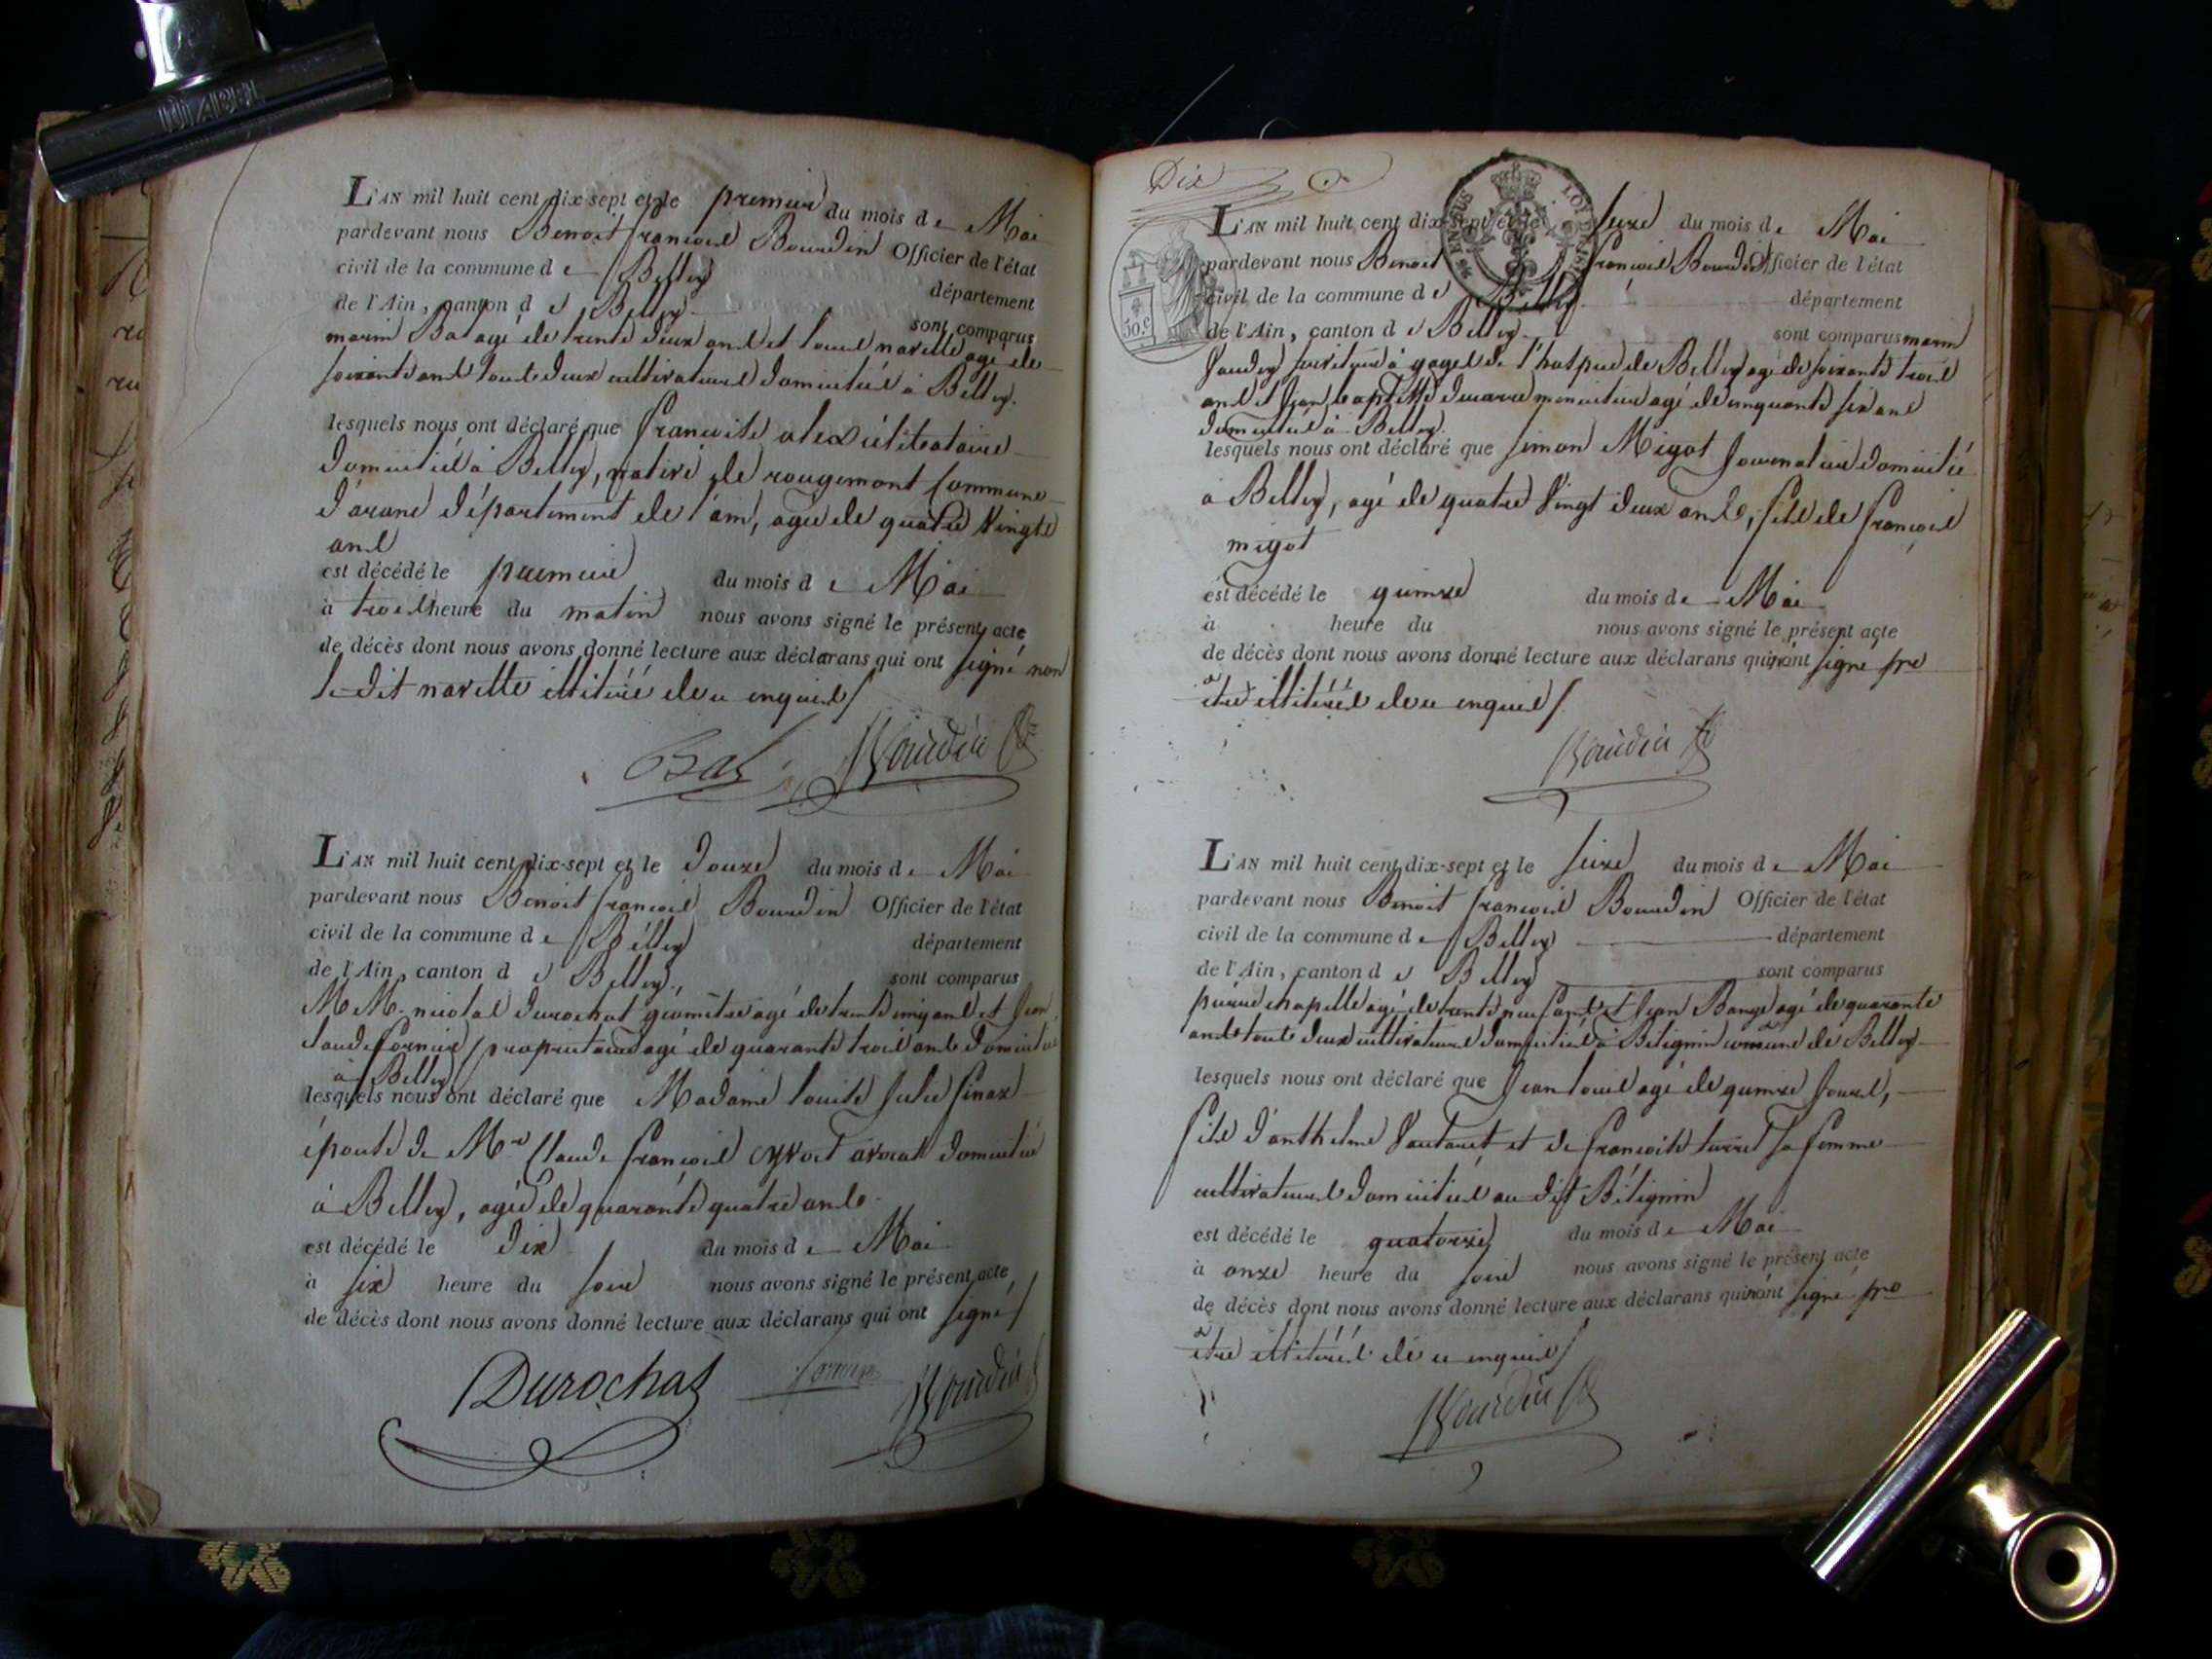 L'AN mil huit cent dix-sept et le premier du mois de Mai
pardevant nous Benoit françois Bourdin Officier de l'état
civil de la commune de Belley département
de l'Ain, canton de Belley sont comparus
marin Bal agé de trente deux ans et louis navette agé de
soixante ans tout deux cultivateurs domiciliés à Belley.
lesquels nous ont déclaré que françoise alex célibataire
domiciliée à Belley, native de rougemont commune
d'arane département de l'ain, agée de quatre vingts
ans
est décédé le premier du mois de Mai
à trois heure du matin nous avons signé le présent acte
de décès dont nous avons donné lecture aux déclarans qui ont signé non
le dit navette illitéré de ce enquis
Bal Bourdin
L'AN mil huit cent dix-sept et le douze du mois de Mai
pardevant nous Benoit françois Bourdin Officier de l'état
civil de la commune de Belley département
de l'Ain, canton de Belley, sont comparus
M M. nicolas Durochat géomètre agé de trente cinq ans et Jean
Claude propriétaire agé de quarante trois ans domiciliés
à Belley
lesquels nous ont déclaré que Madame louise Julie
épouse de Mr Claude françois cyvoct avocat domicilié
à Belley, agée de quarante quatre ans.
est décédé le dix du mois de Mai
à six heure du soir nous avons signé le présent acte
de décès dont nous avons donné lecture aux déclarans qui ont signé
Durochat Bourdin
Dix
SUSPENSUS
30.c
L'AN mil huit cent dix-sept et le seize du mois de Mai
pardevant nous Benoit françois Bourdin Officier de l'état
civil de la commune de Belley département
de l'Ain, canton de Belley sont comparus marin
à gages de l'hospice de Belley agé de soixante trois
ans et Jean baptiste agé de cinquante six ans
domiciliés à Belley.
lesquels nous ont déclaré que simon Migot Journalier domicilié
à Belley, agé de quatre vingt deux ans, fils de françois
migot
est décédé le quinze du mois de Mai
à heure du nous avons signé le présent acte
de décès dont nous avons donné lecture aux déclarans qui n'ont signé pr
etre illitérés de ce enquis
Bourdin
L'AN mil huit cent dix-sept et le seize du mois de Mai
pardevant nous Benoit françois Bourdin Officier de l'état
civil de la commune de Belley département
de l'Ain, canton de Belley sont comparus
pierre chapelle agé de trente neuf ans et Jean agé de quarante
ans tout deux cultivateurs domiciliés à Bitignin commune de Belley
lesquels nous ont déclaré que Jean louis agé de quinze Jours,
fils d'anthelme et de françoise sa femme
cultivateurs domiciliés au dit Bétignin
est décédé le quatorze du mois de Mai
à onze heure du soir nous avons signé le présent acte
de décès dont nous avons donné lecture aux déclarans qui n'ont signé pr
etre illitérés de ce enquis
Bourdin